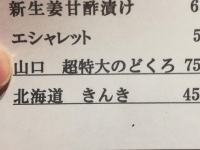 新生姜甘酢漬け 6
エシャレット 5
山口 超特大のどくろ 75
北海道 きんき 45